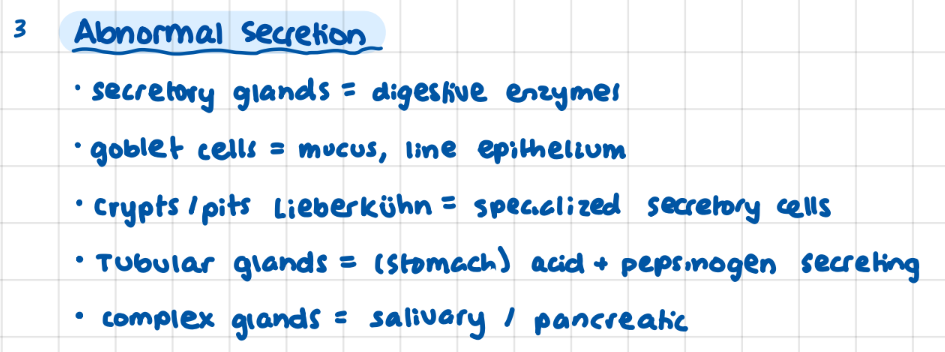 3 Abnormal Secretion
• secretory glands = digestive enzymes
• goblet cells = mucus, line epithelium
• crypts / pits Lieberkühn = specialized secretory cells
• Tubular glands = (stomach) acid + pepsinogen secreting
• complex glands = salivary / pancreatic